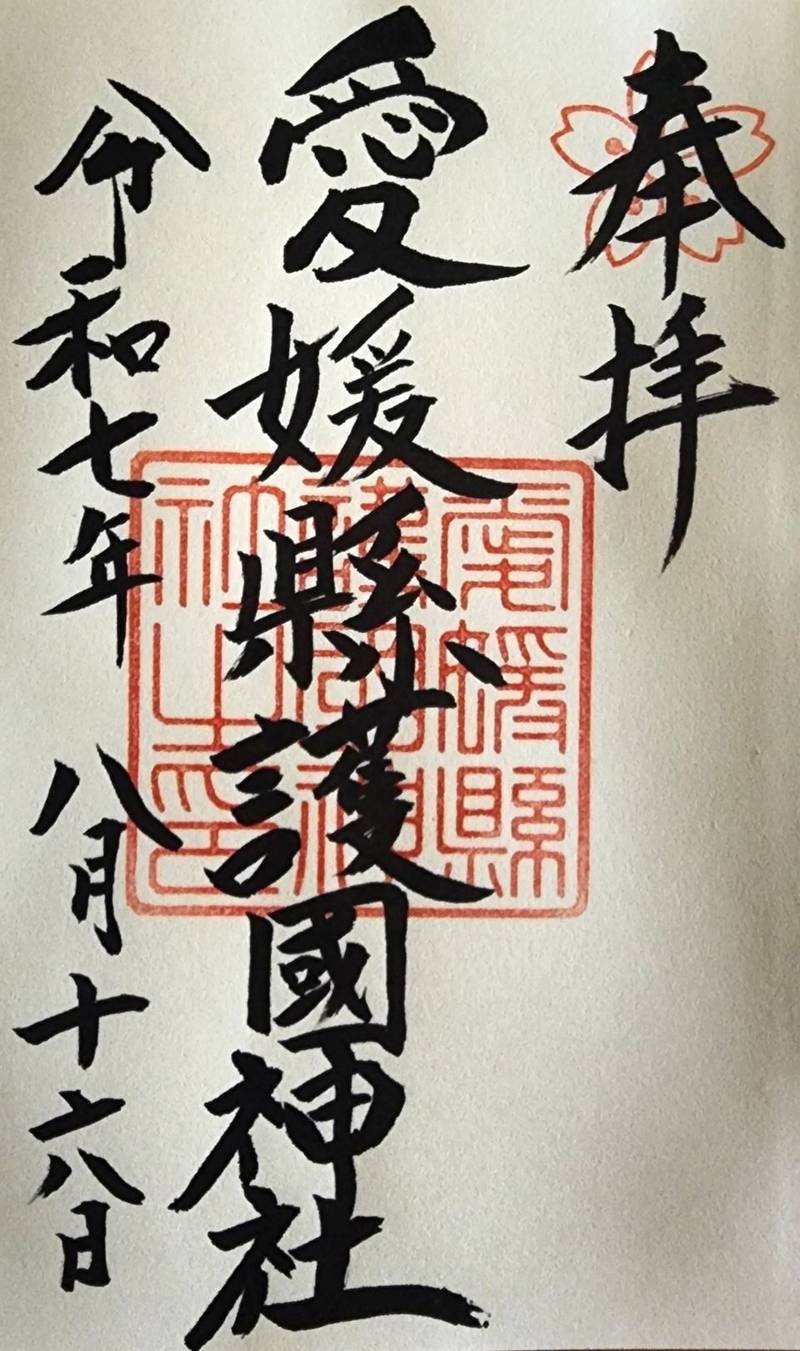 奉拝
愛媛縣護國神社
愛媛縣
護國神
社之印
令和七年 八月十六日